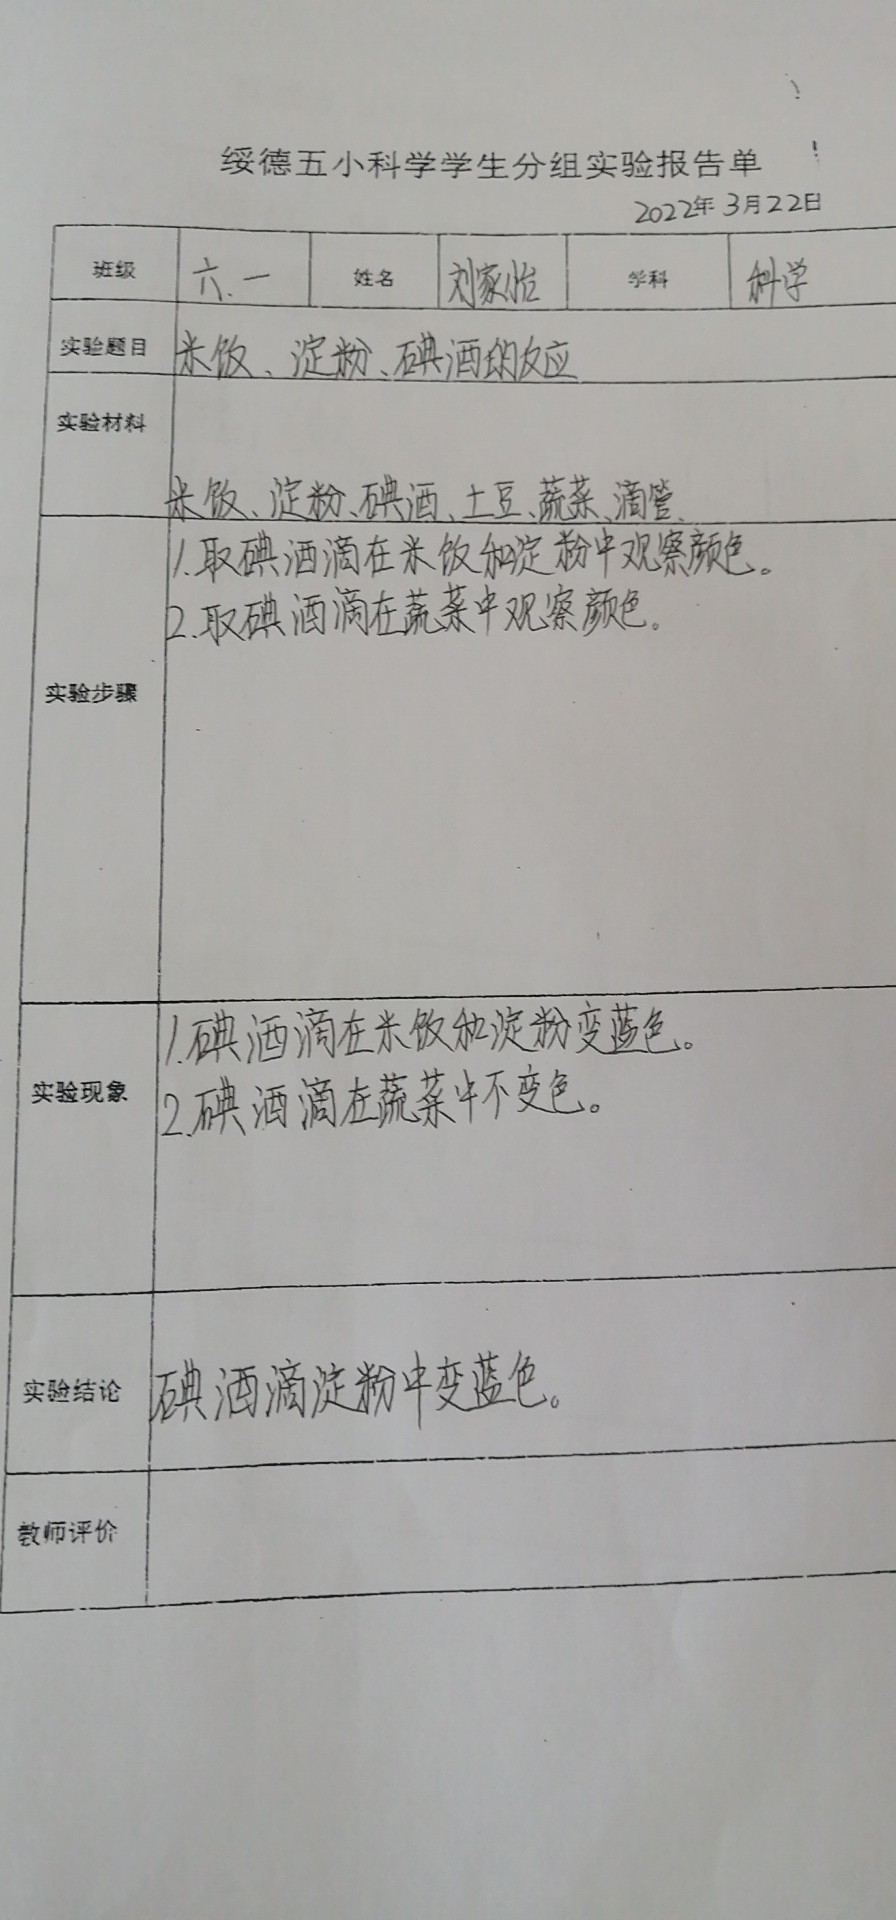 绥德五小科学学生分组实验报告单
2022年3月22日
班级 六.一 姓名 刘家怡 学科 科学
实验题目 米饭、淀粉、碘酒的反应
实验材料
米饭、淀粉、碘酒、土豆、蔬菜、滴管、
1.取碘酒滴在米饭和淀粉中观察颜色。
2.取碘酒滴在蔬菜中观察颜色。
实验步骤
1.碘酒滴在米饭和淀粉变蓝色。
实验现象
2.碘酒滴在蔬菜中不变色。
实验结论 碘酒滴淀粉中变蓝色。
教师评价